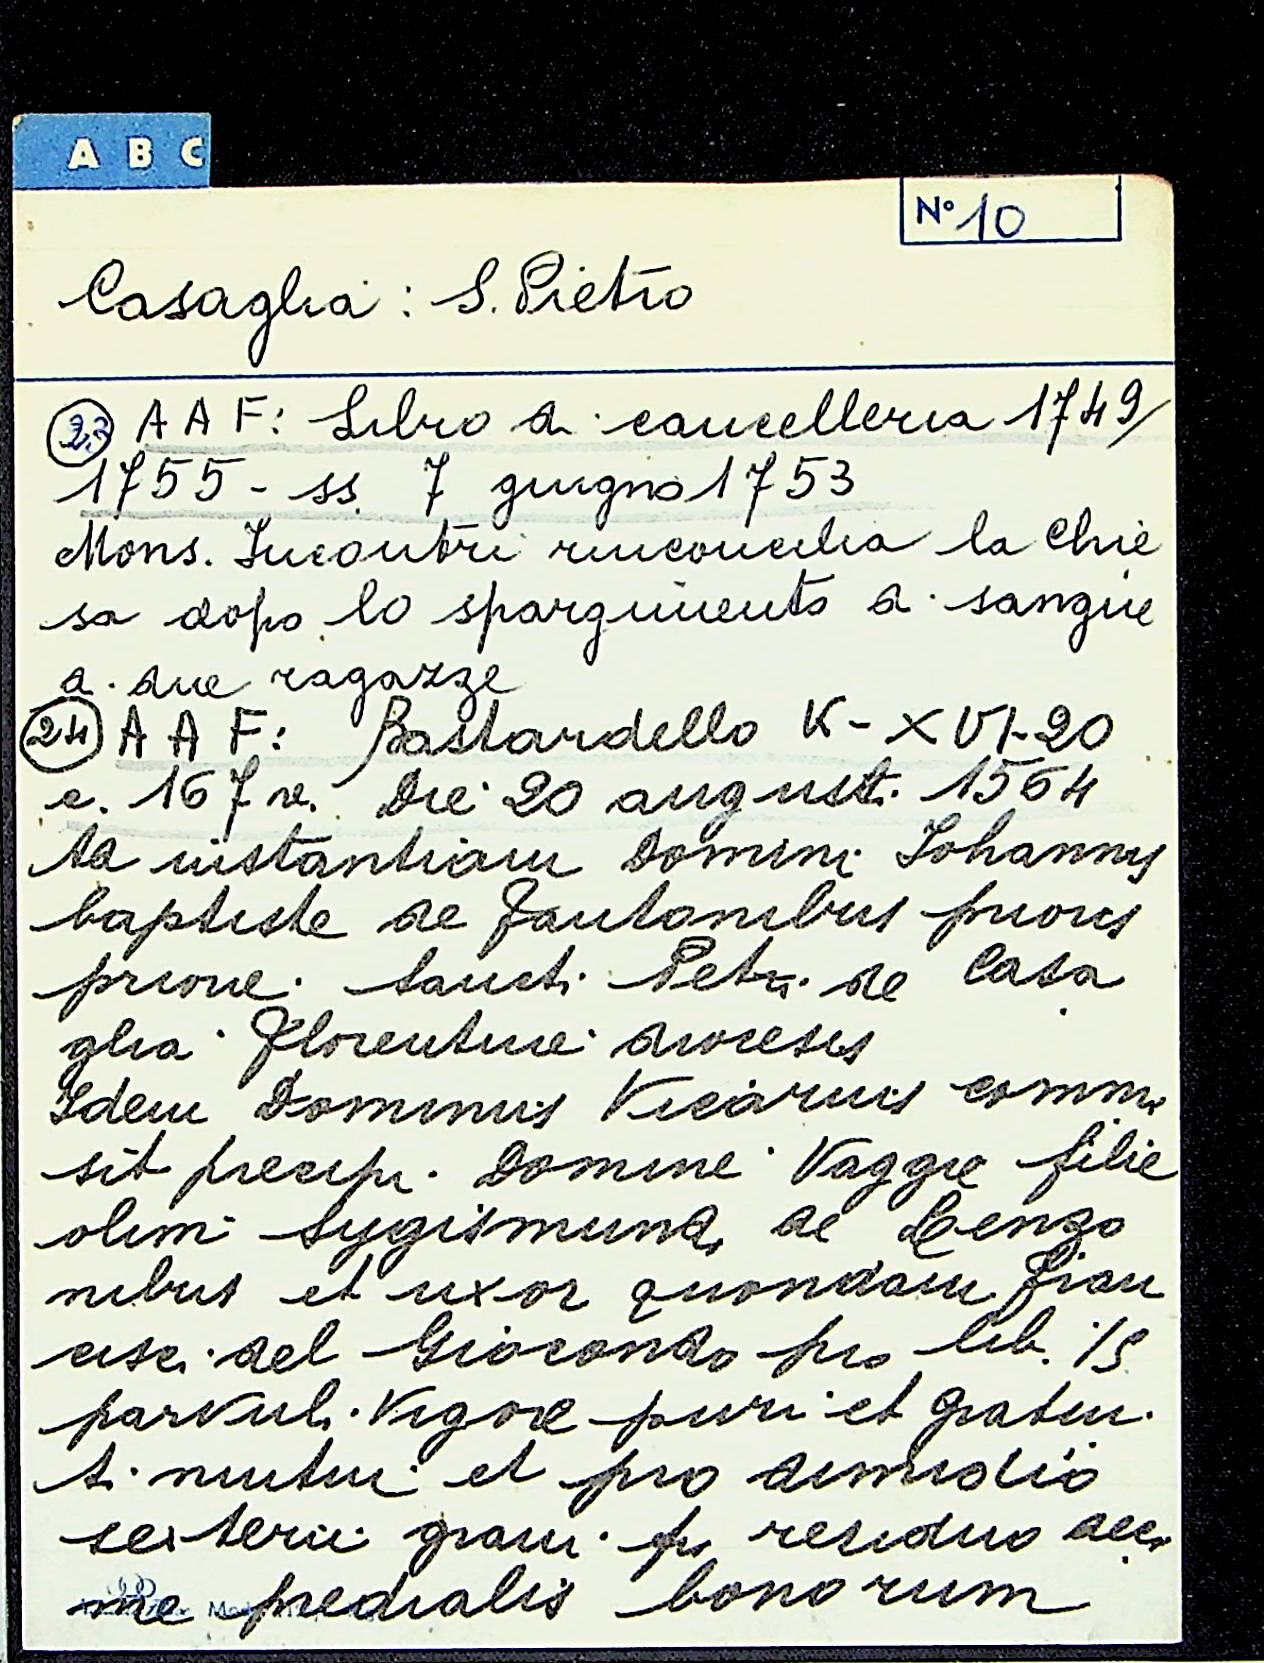 A B C
N° 10
Casaglia: S. Pietro
23 A A F: Libro di cancelleria 1749/
1755 - ss. 7 giugno 1753
Mons. Incontri riconcilia la Chie
sa dopo lo spargimento di sangue
di due ragazze
24 A A F: Bastardello V - XVI-20
c. 167 v. Die 20 augusti 1564
Ad instantiam Domini Johannis
baptiste de Fantonibus prioris
priorie Sancti Petri de Casa
glia Florentine diocesis
Idem Dominus Vicarius commi
sit precipi Domine Vaggie filie
olim Sygismundi de Benzo
nibus et uxor quondam Fran
cisci del Giocondo pro lib. 15
parvuli vigore puri et gratui
ti mutui et pro dimidio
sexterii grani pro residuo deci
me predialis bonorum